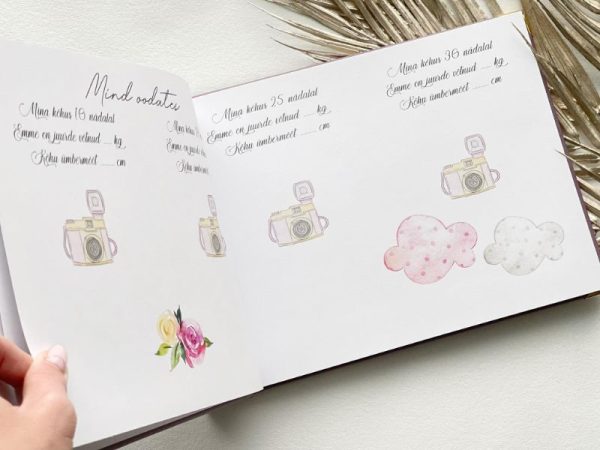 Mind oodates
Mina kõhus 16 nädalal
Emme on juurde võtnud ___ kg
Kõhu ümbermõõt ___ cm
Mina kõhus 25 nädalal
Emme on juurde võtnud ___ kg
Kõhu ümbermõõt ___ cm
Mina kõhus 36 nädalal
Emme on juurde võtnud ___ kg
Kõhu ümbermõõt ___ cm